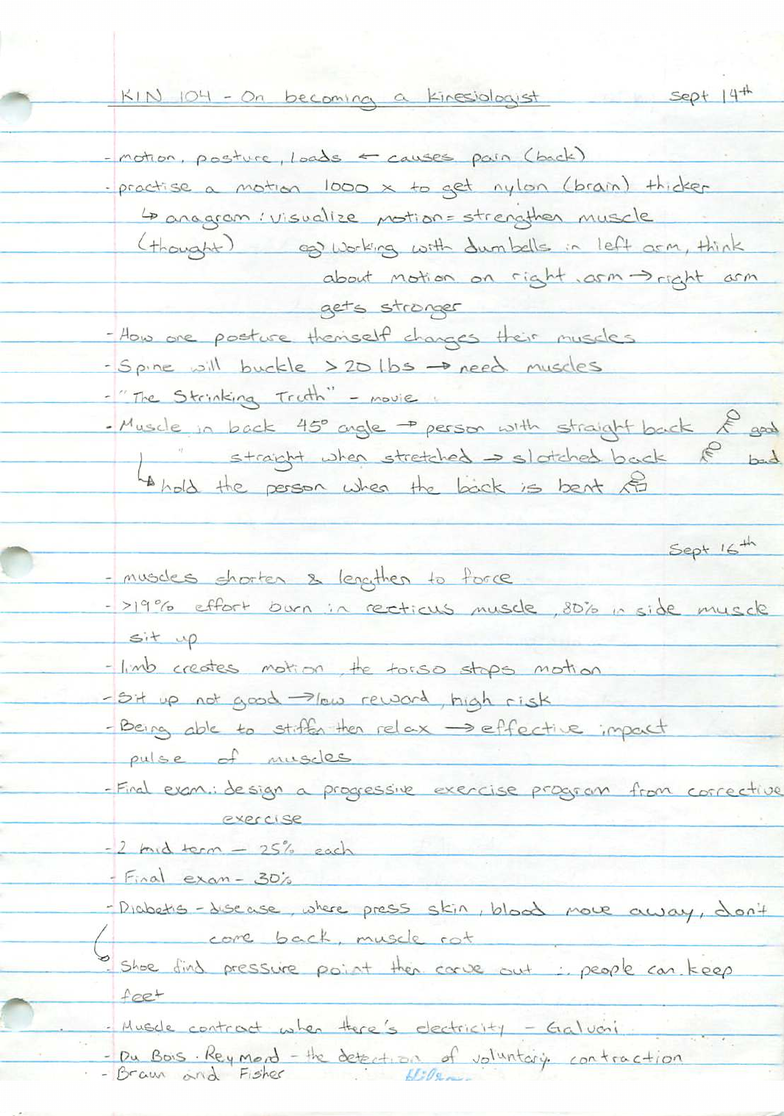 KIN 104 - On becoming a kinesiologist Sept 14th
- motion, posture, loads ← causes pain (back)
- practise a motion 1000 x to get nylon (brain) thicker
↳ anagram : visualize motion = strengthen muscle
(thought) eg) Working with dumbells in left arm, think
about motion on right arm → right arm
gets stronger
- How one posture themself changes their muscles
- Spine will buckle > 20 lbs → need muscles
- "The Strinking Truth" - movie
- Muscle in back 45° angle → person with straight back good
" straight when stretched → slotched back bad
↳ hold the person when the back is bent
Sept 16th
- muscles shorten & lengthen to force
- >19% effort burn in recticus muscle, 80% in side muscle
sit up
- limb creates motion, the torso stops motion
- Sit up not good → low reward, high risk
- Being able to stiffn then relax → effective impact
pulse of muscles
- Final exam : design a progressive exercise program from corrective
exercise
- 2 mid term - 25% each
- Final exam - 30%
- Diabetis - disease, where press skin, blood move away, don't
come back, muscle rot
↳ Shoe find pressure point then carve out ∴ people can keep
feet
- Muscle contract when there's electricity - Galvani
- Du Bois-Reymord - the detection of voluntary contraction
- Braun and Fisher